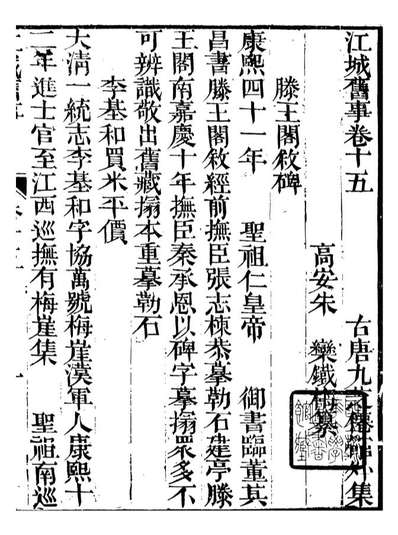 江城舊事卷十五　　古唐九　　集
高安朱　欒鐵梅纂
滕王閣敘碑
康熙四十一年　聖祖仁皇帝　御書臨董其
昌書滕王閣敘經前撫臣張志棟恭摹勒石建亭滕
王閣南嘉慶十年撫臣秦承恩以碑字摹搨眾多不
可辨識敬出舊藏搨本重摹勒石
李基和買米平價
大清一統志李基和字協萬號梅崖漢軍人康熙十
二年進士官至江西巡撫有梅崖集　聖祖南巡